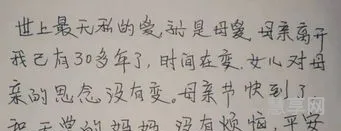 世上最无私的爱就是母爱,母亲离开
我已有30多年了,时间在变,女儿对母
亲的思念没有变。母亲节快到了
和天堂的妈妈,没有烦恼,平安